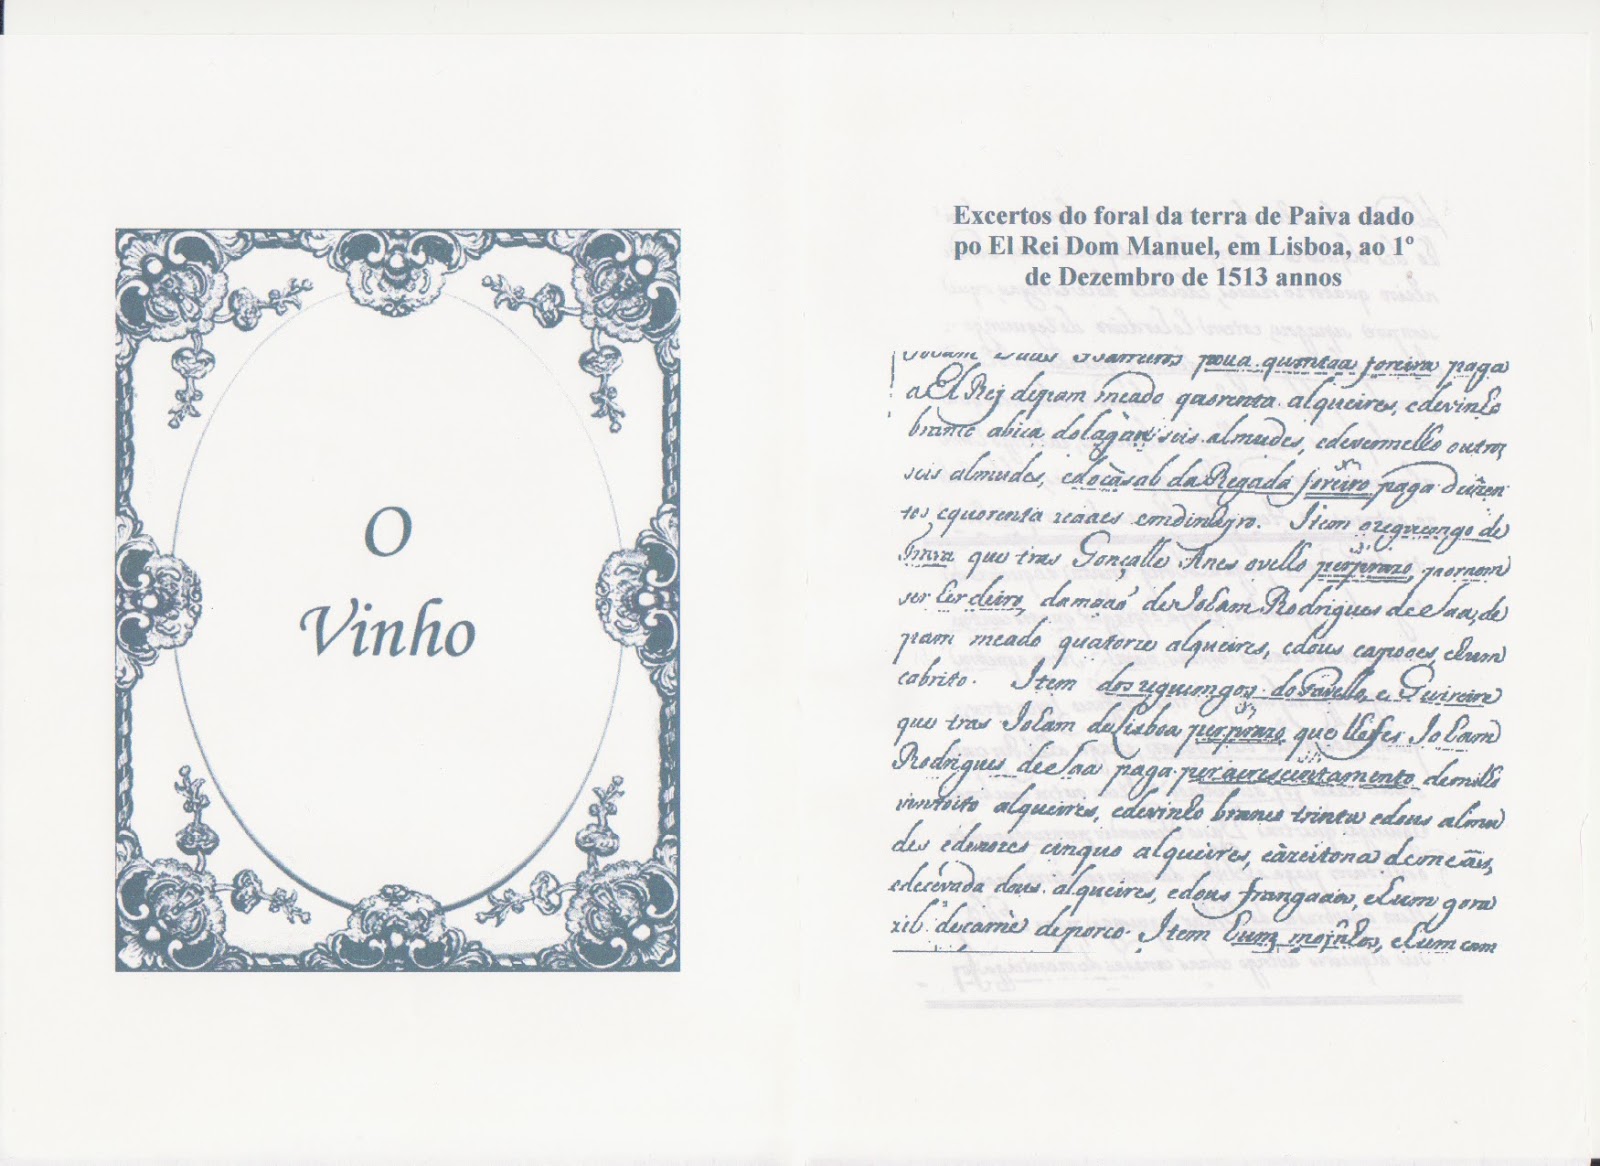 O
Vinho
Excertos do foral da terra de Paiva dado
po El Rei Dom Manuel, em Lisboa, ao 1º
de Dezembro de 1513 annos
quintaa foreira paga
a El Rej depam meado quorenta alqueires, edevinho
branco abica dolagar seis almudes, edevermelho outros
seis almudes, edocàsal da Regada foreiro paga duzen
tos equorenta reaes emdinheyro. Item oregueengo de
que tras Gonçalle Anes ovelho perprazo, pornom
ser Erdeiro, damaaõ deJoham Rodrigues deSaa, de
pam meado quatorze alqueires, edous capoees, ehum
cabrito. Item dos reguengos do e
que tras Joham deLisboa perprazo que lhefes Joham
Rodrigues deSaa paga peracrescentamento demilho
alqueires, edevinho branco trinta edous almu
des edenozes cinquo alqueires,
ecevada dous alqueires, edous frangaaos, ehum gora
zil decarnè deporco. Item hum mojnhos, ehum cam